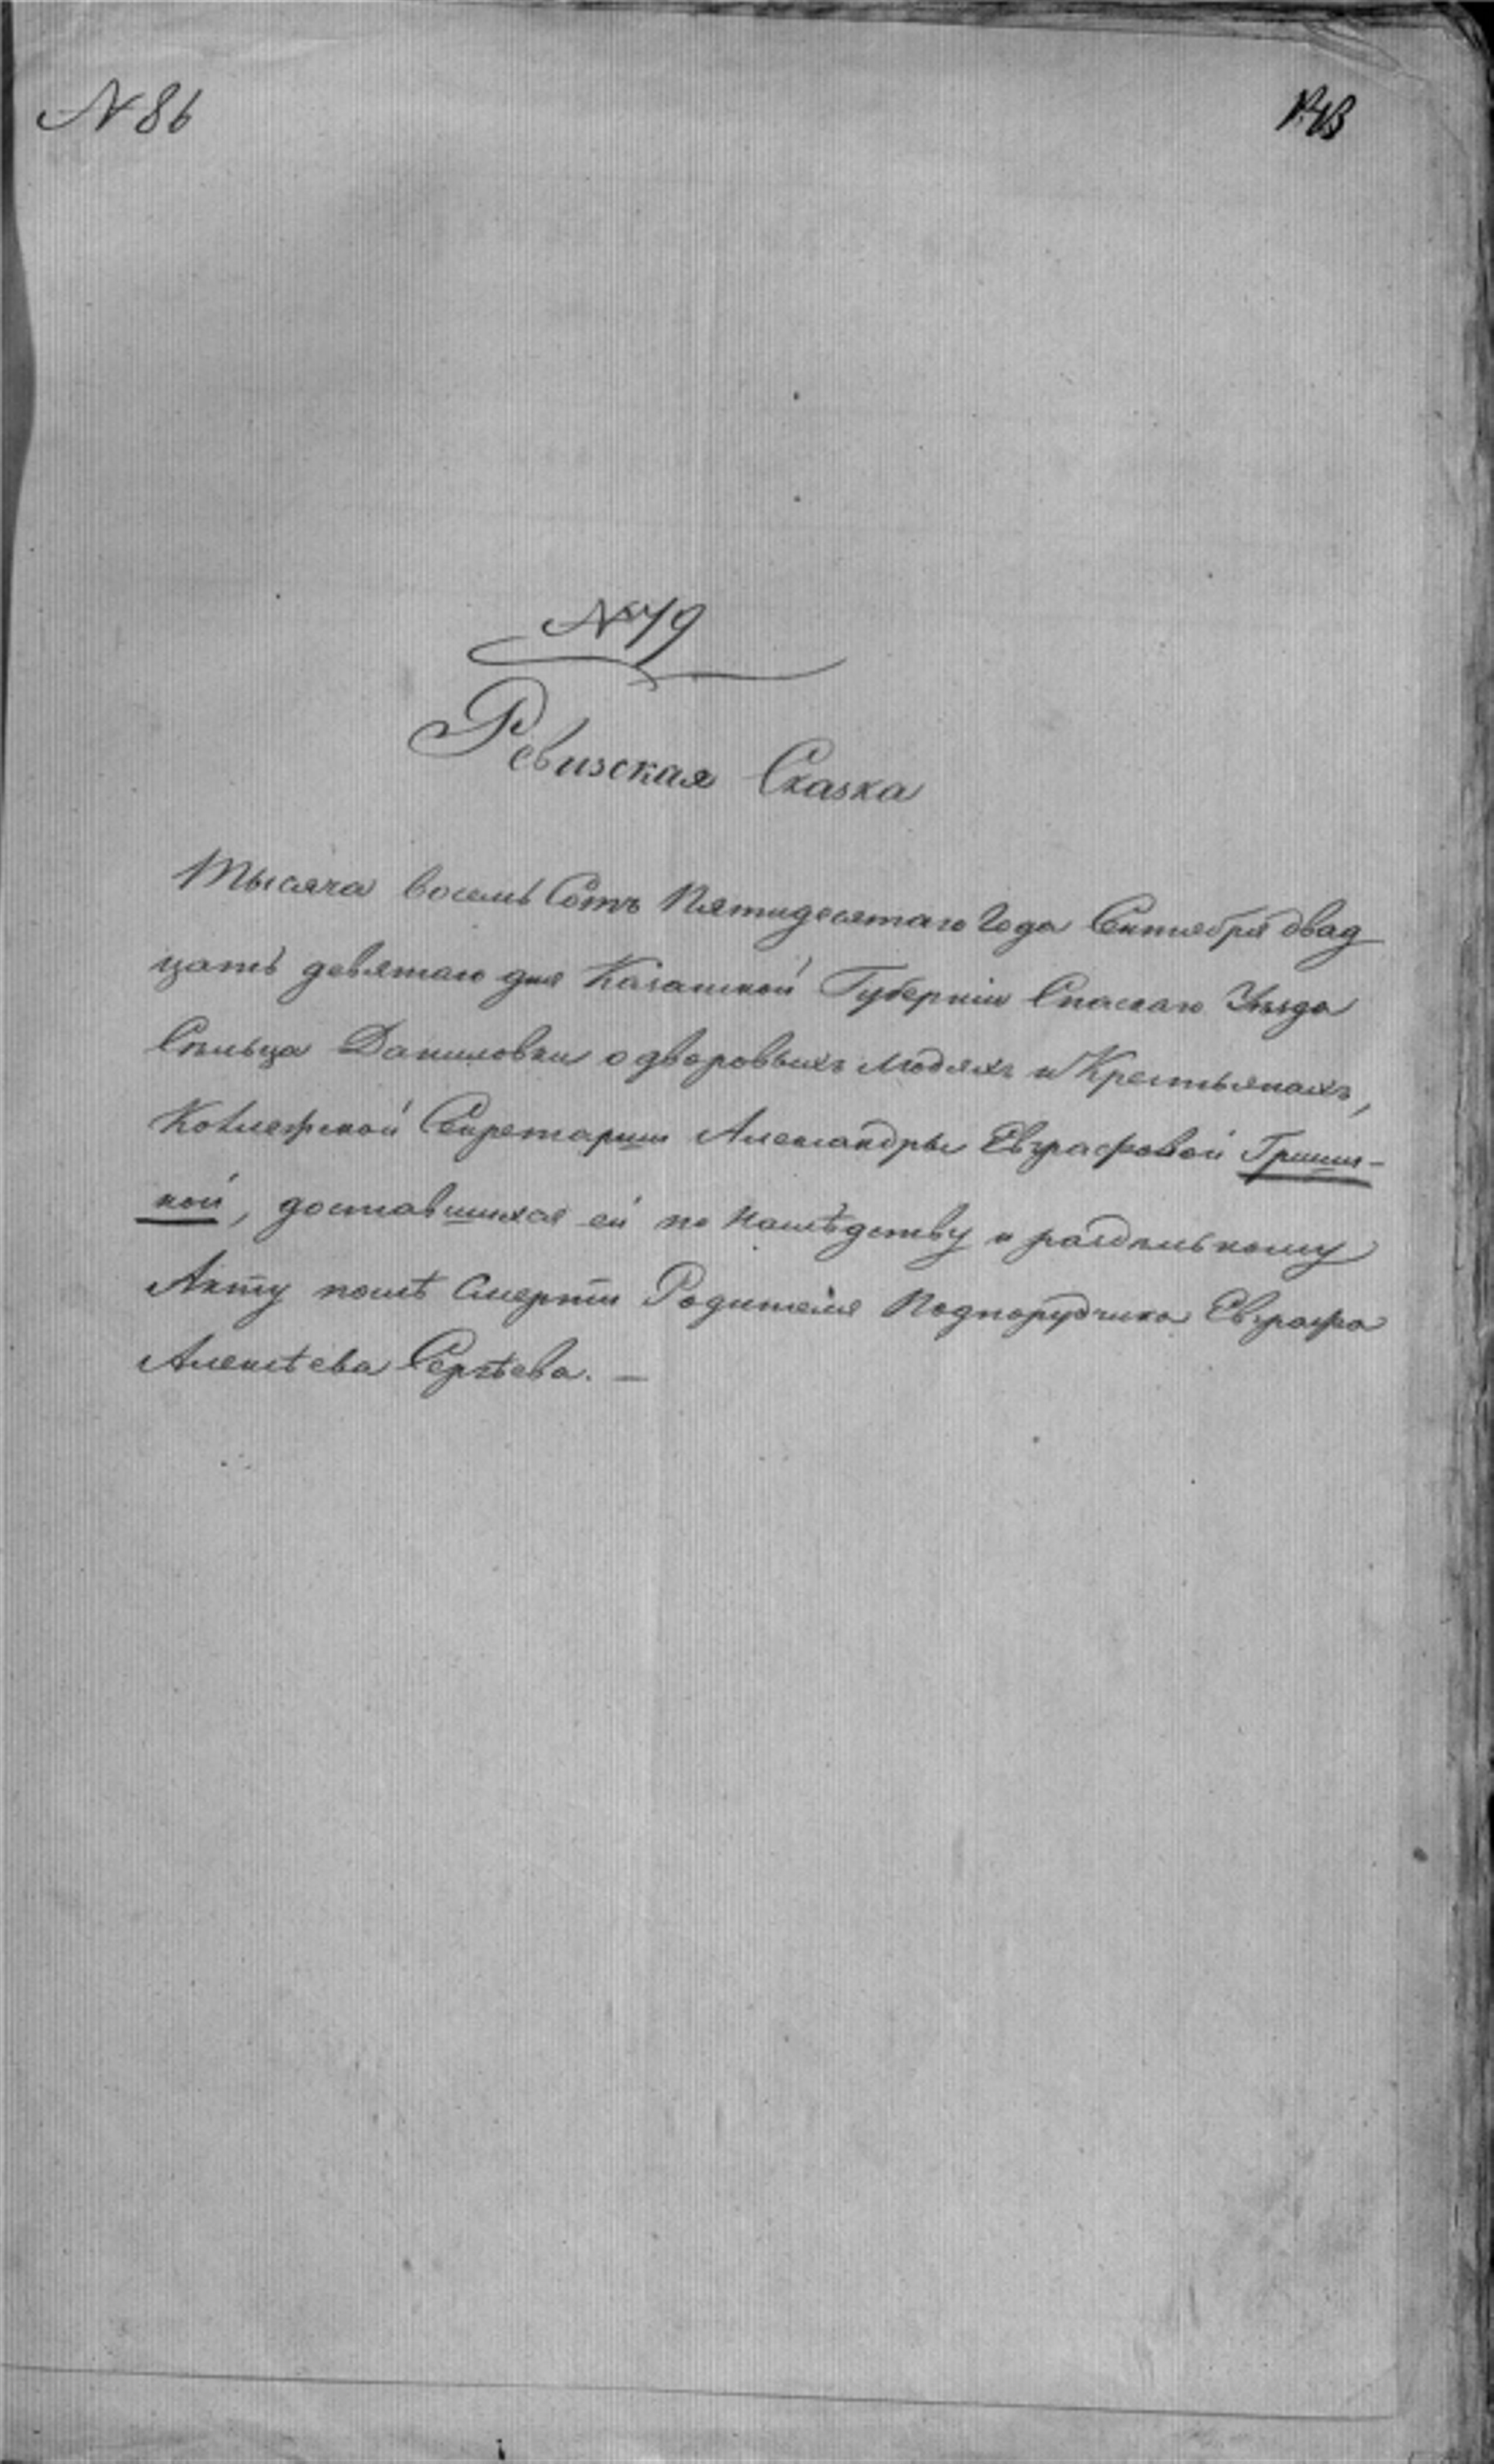 N 86
№ 79
Ревизская Сказка
Тысяча восемь Сотъ Пятидесятаго Года Сентября двад
цать девятаго дня Казанской Губерніи Спаскаго Уѣзда
Сѣльца Даниловки о дворовыхъ людяхъ и Крестьянахъ,
Колежской Секретарши Александры Евграфовой
ной, доставшихся ей по Наслѣдству и раздѣльному
Акту послѣ Смерти Родителя Подпорудчика Евграфа
Алексѣева Сергѣева. —